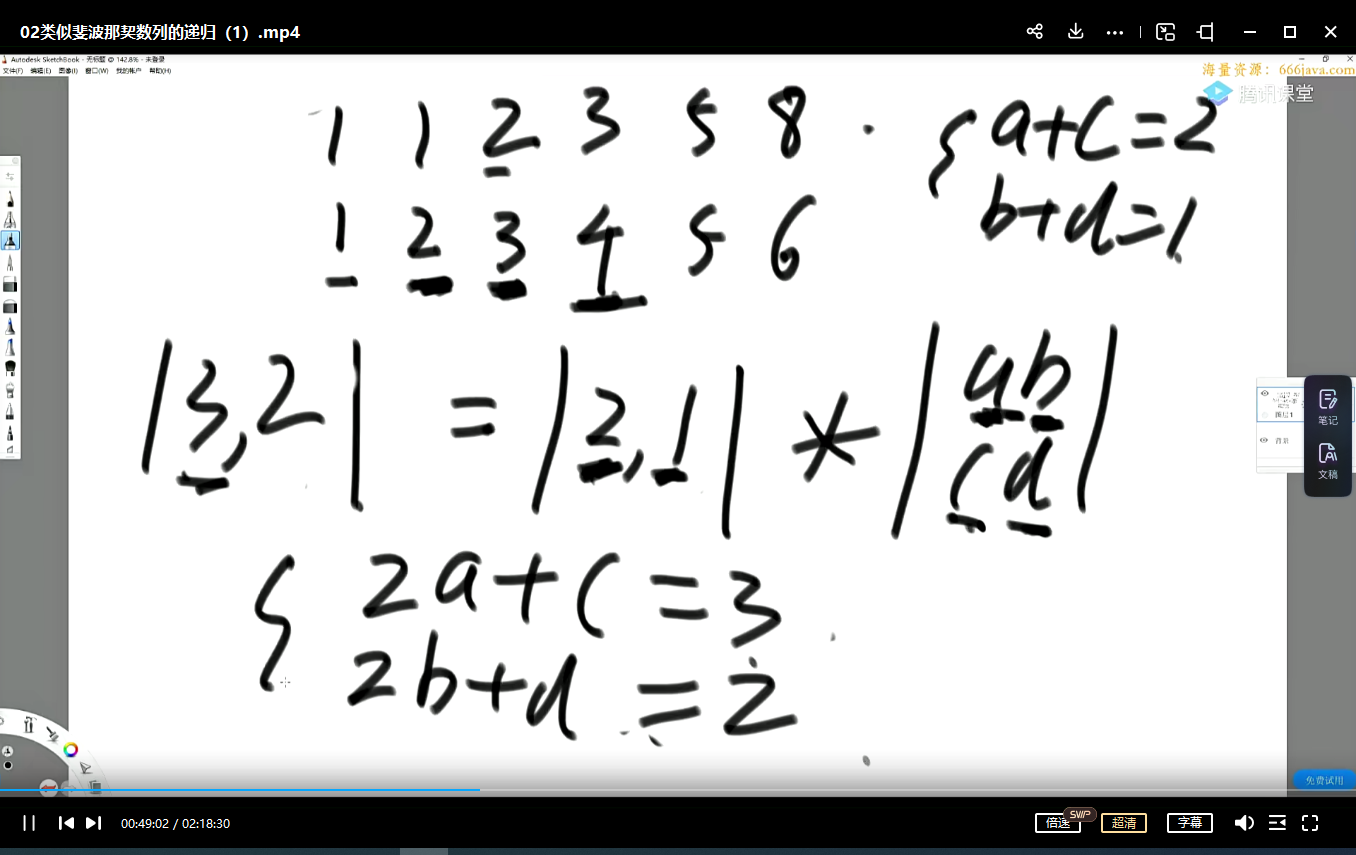 02类似斐波那契数列的递归（1）.mp4
Autodesk SketchBook - 无标题 @ 142.8% - 未登录
文件(F) 编辑(E) 图像(I) 窗口(W) 我的帐户 帮助(H)
海量资源：666java.com
腾讯课堂
1 1 2 3 5 8
1 2 3 4 5 6
{ a+c=2
b+d=1
|3,2| = |2,1| * |a b
c d|
{ 2a+c=3
2b+d=2
图层1
背景
笔记
文稿
免费试用
00:49:02 / 02:18:30
倍速
SWP
超清
字幕